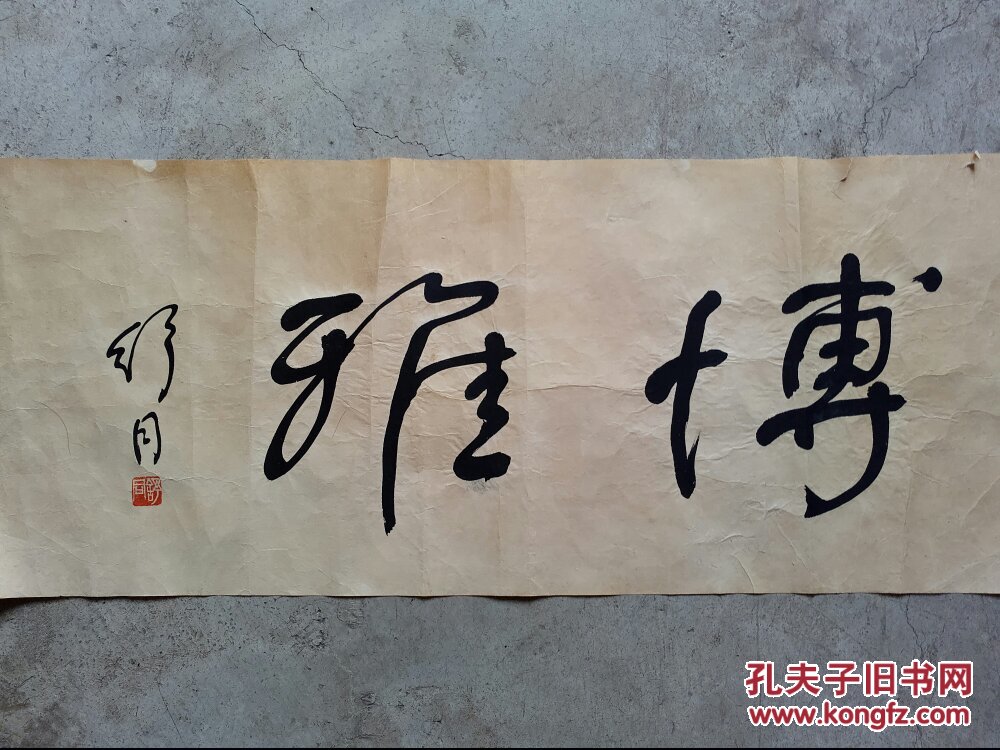 博雅
舒同
舒同
孔夫子旧书网
www.kongfz.com